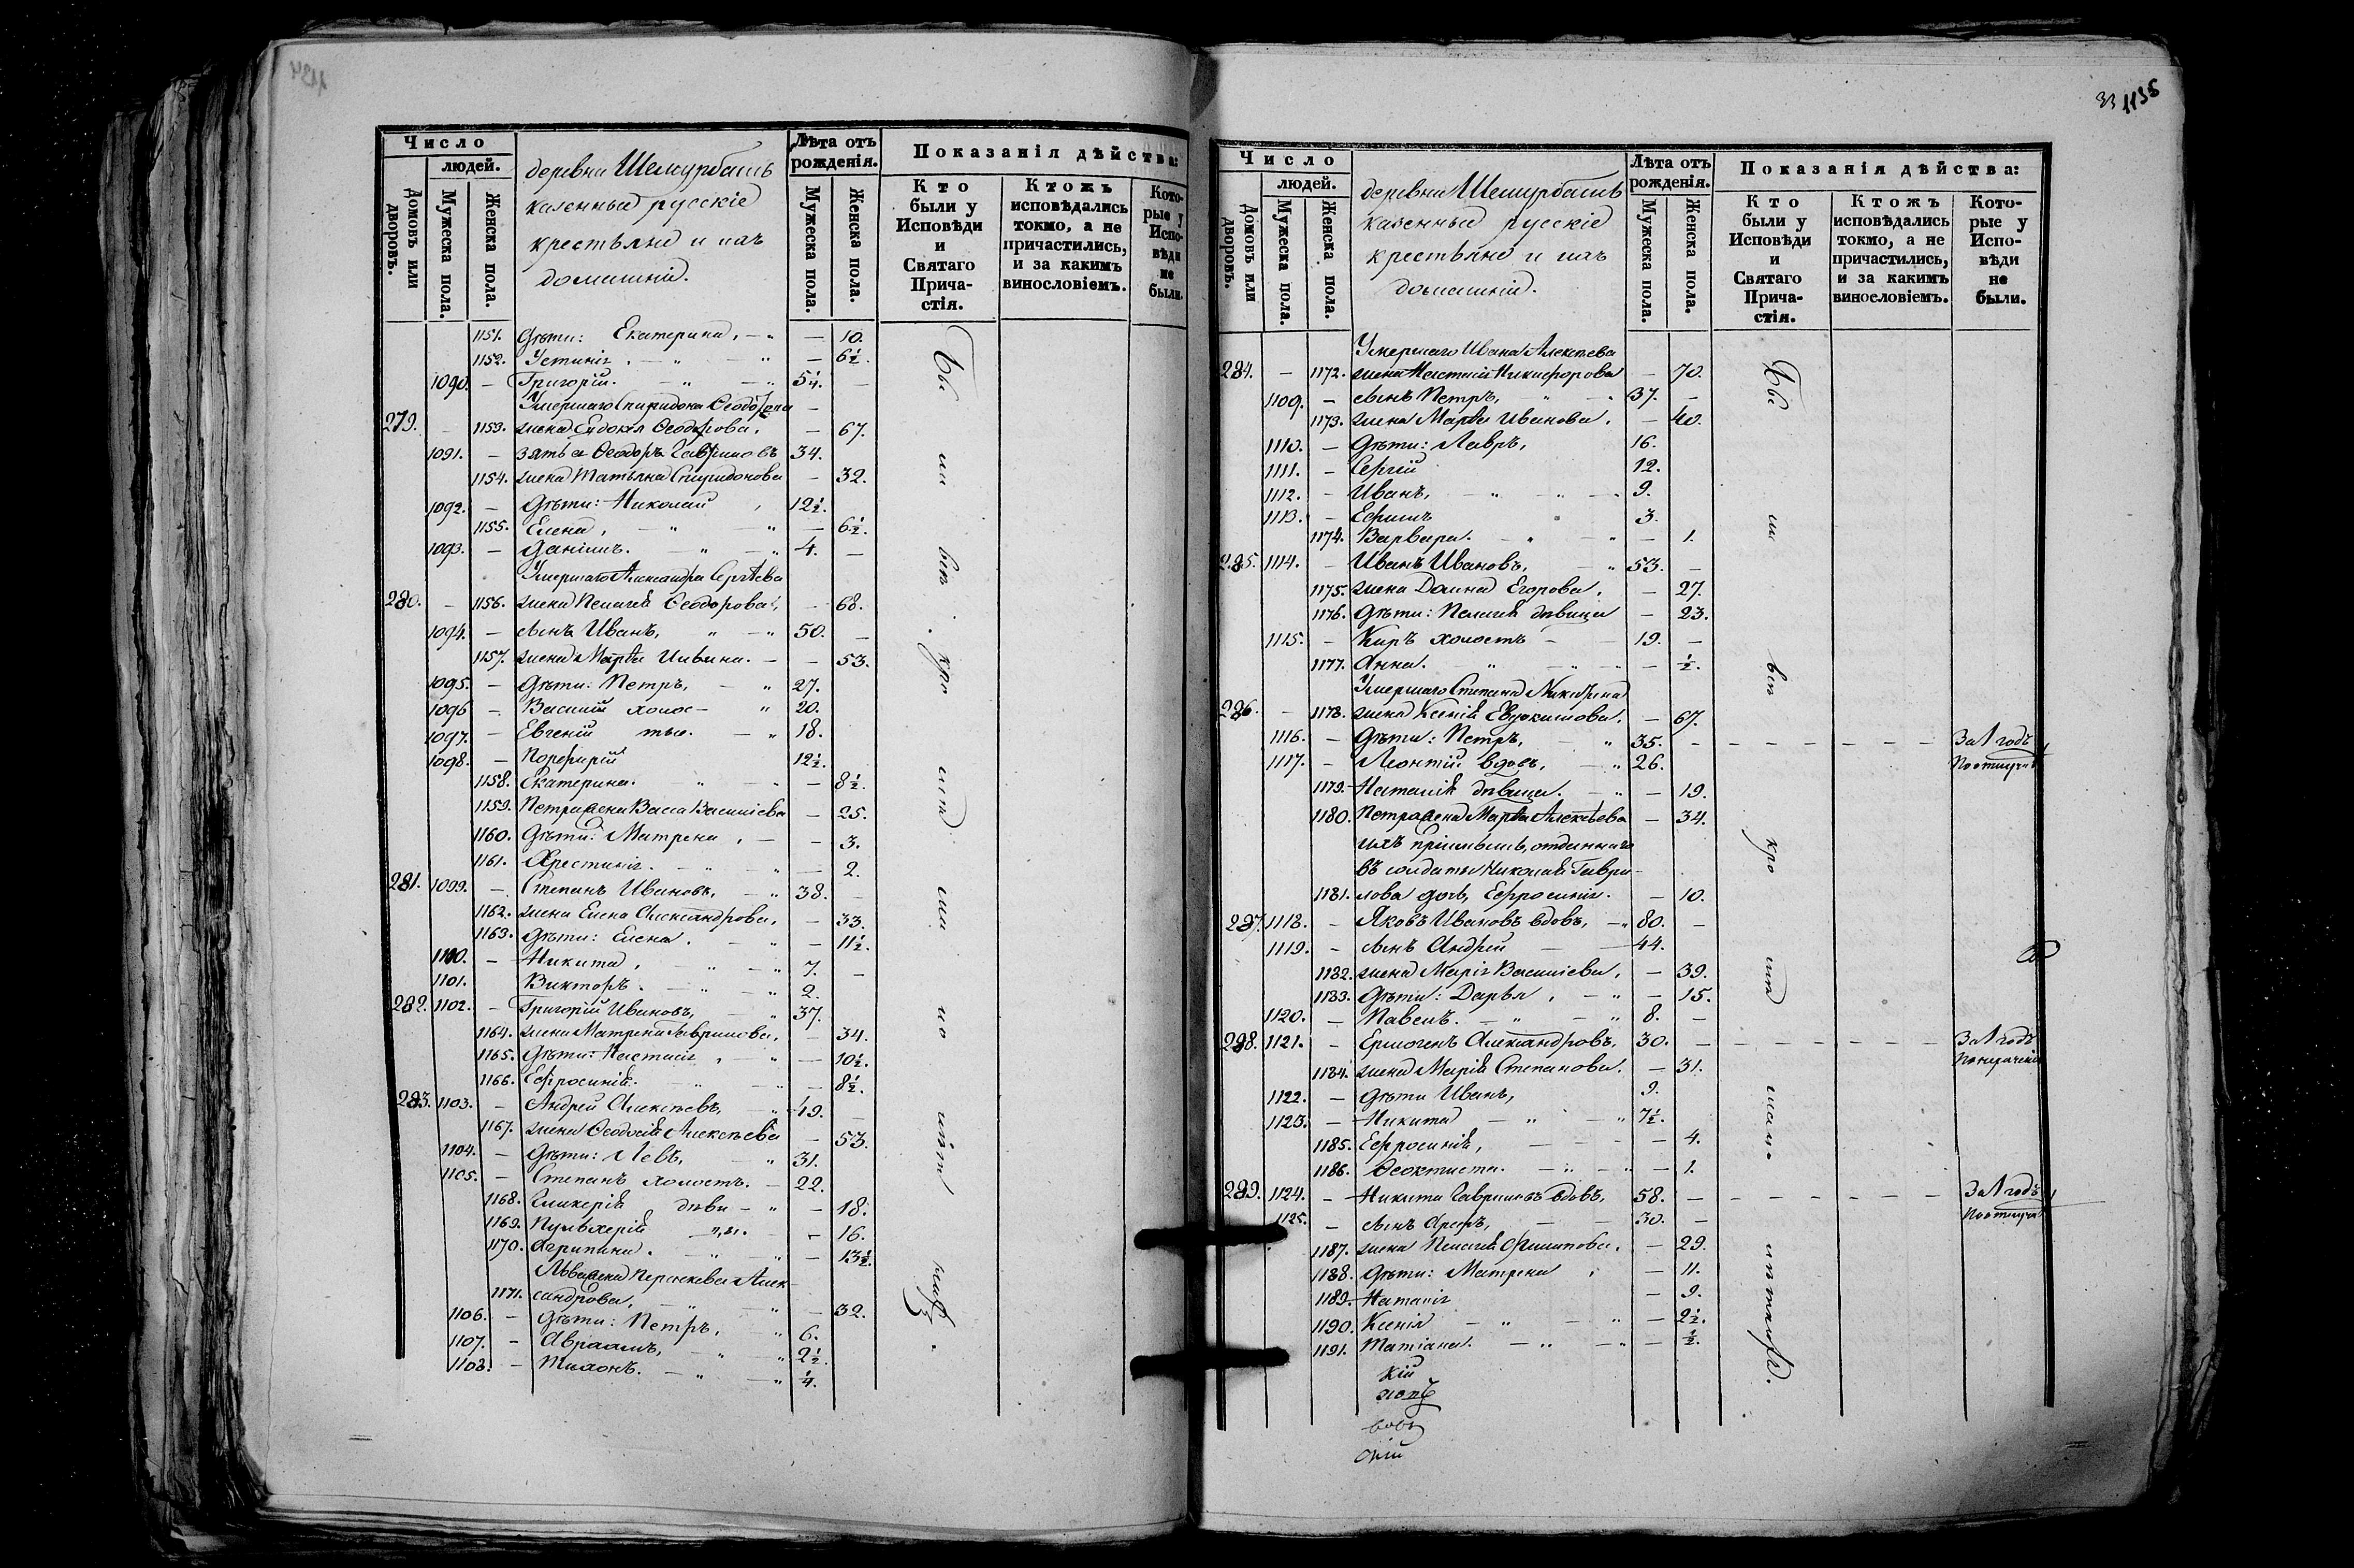 Число
людей.
Домовъ или дворовъ.
Мужеска пола.
Женска пола.
деревни Шемурбашъ
казенныя русскіе
крестьяне и ихъ
домашніе.
Лѣта отъ рожденія.
Мужеска пола.
Женска пола.
Показанія дѣйства:
Кто были у Исповѣди и Святаго Причастія.
Ктожъ исповѣдались токмо, а не причастились, и за какимъ винословіемъ.
Которые у Исповѣди не были.
1151. Дѣти: Екатерина, — 10.
1152. Устинія — 6½.
1090. — Григорій. 5¼. —
Умершаго Спиридона Ѳеодорова
279. — 1153. жена Евдокія Ѳеодорова, — 67.
1091. — зять ея Ѳеодоръ Гавриловъ 34.
1154. жена Татьяна Спиридонова — 32.
1092. — Дѣти: Николай, 12½.
1155. Елена, — 6½.
1093. — Даніилъ. 4. —
Умершаго Александра Сергѣева
280. — 1156. жена Пелагея Ѳеодорова, — 68.
1094. — сынъ Иванъ, 50. —
1157. жена Марѳа Ильина. — 53.
1095. — Дѣти: Петръ, 27.
1096 — Василій холос— 20.
1097. — Евгеній тые. 18.
1098. — Порфирій 12½.
1158. Екатерина. — 8½.
1159. Петра жена Васса Василіева — 25.
1160. Дѣти: Матрена, — 3.
1161. Христинія. — 2.
281. 1099. — Степанъ Ивановъ, 38. —
1162. жена Елена Александрова, — 33.
1163. Дѣти: Елена. — 11½.
1100. — Никита, 7. —
1101. Викторъ. 2.
282. 1102. — Григорій Ивановъ, 37.
1164. жена Матрена Гаврилова, — 34.
1165. Дѣти: Настасія, — 10½.
1166. Ефросинія. — 8½.
283. 1103. — Андрей Алексѣевъ, 49. —
1167. жена Ѳеодосія Алексѣева — 53.
1104. — Дѣти: Левъ, 31.
1105. — Степанъ холостъ. 22.
1168. Гликерія дѣви— — 18.
1169. Пульхерія цы. — 16.
1170. Агрипина. — 13½.
Льва жена Параскева Алек-
1171. сандрова, — 32.
1106. — Дѣти: Петръ, 6.
1107. — Авраамъ, 2½.
1108. — Тихонъ. ¼.
33 1135
Число
людей.
Домовъ или дворовъ.
Мужеска пола.
Женска пола.
деревни Шемурбашъ
казенныя русскіе
крестьяне и ихъ
домашніе.
Лѣта отъ рожденія.
Мужеска пола.
Женска пола.
Показанія дѣйства:
Кто были у Исповѣди и Святаго Причастія.
Ктожъ исповѣдались токмо, а не причастились, и за какимъ винословіемъ.
Которые у Исповѣди не были.
Умершаго Ивана Алексѣева
284. — 1172. жена Настасія Никифорова — 70.
1109. — сынъ Петръ, 37. —
1173. жена Марѳа Иванова, — 40.
1110. — Дѣти: Лавръ, 16.
1111. — Сергій 12.
1112. — Иванъ, 9.
1113. — Ефимъ 3.
1174. Варвара. — 1.
285. 1114. — Иванъ Ивановъ, 53. —
1175. жена Домна Егорова, — 27.
1176. Дѣти: Пелагея дѣвица — 23.
1115. — Киръ холостъ 19. —
1177. Анна. — ½.
Умершаго Степана
286. — 1178. жена Ксенія Евдокимова. — 67.
1116. — Дѣти: Петръ, 35. — За 1 годъ
1117. — Леонтій вдовъ, 26.
1179. Наталія дѣвица. — 19.
1180. Петра жена Марѳа Алексѣева — 34.
ихъ пріемышъ, отданнаго
въ солдаты Николая Гаври-
1181. лова дочь, Ефросинія. — 10.
287. 1118. — Яковъ Ивановъ вдовъ, 80. —
1119. — сынъ Андрей 44.
1182. жена Марія Василіева, — 39.
1183. Дѣти: Дарья, — 15.
1120. — Павелъ. 8. —
288. 1121. — Ермогенъ Александровъ, 30. — За 1 годъ
1184. жена Марія Степанова. — 31.
1122. — Дѣти Иванъ, 9.
1123. — Никита 7½.
1185. Ефросинія, — 4.
1186. Ѳеоктиста. — 1.
289. 1124. — Никита Гавриловъ вдовъ, 58. — За 1 годъ
1125. — сынъ Арефъ, 30. —
1187. жена Пелагея Филипова. — 29.
1188. Дѣти: Матрена — 11.
1189. Наталія — 9.
1190. Ксенія — 2½.
1191. Татіана. — ½.